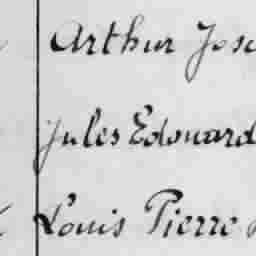 Arthur Jose
Jules Edouard
Louis Pierre